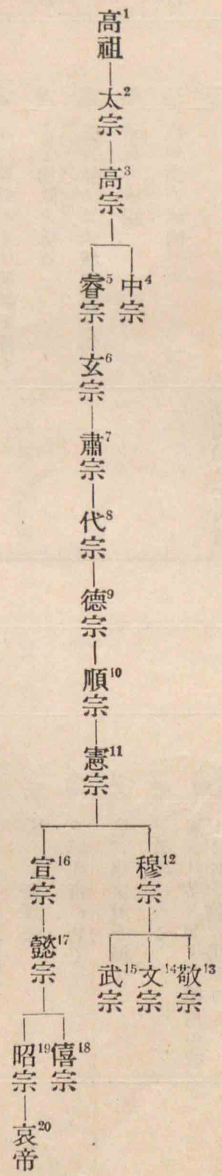 高祖1
太宗2
高宗3
中宗4
睿宗5
玄宗6
肅宗7
代宗8
德宗9
順宗10
憲宗11
穆宗12
敬宗13
文宗14
武宗15
宣宗16
懿宗17
僖宗18
昭宗19
哀帝20